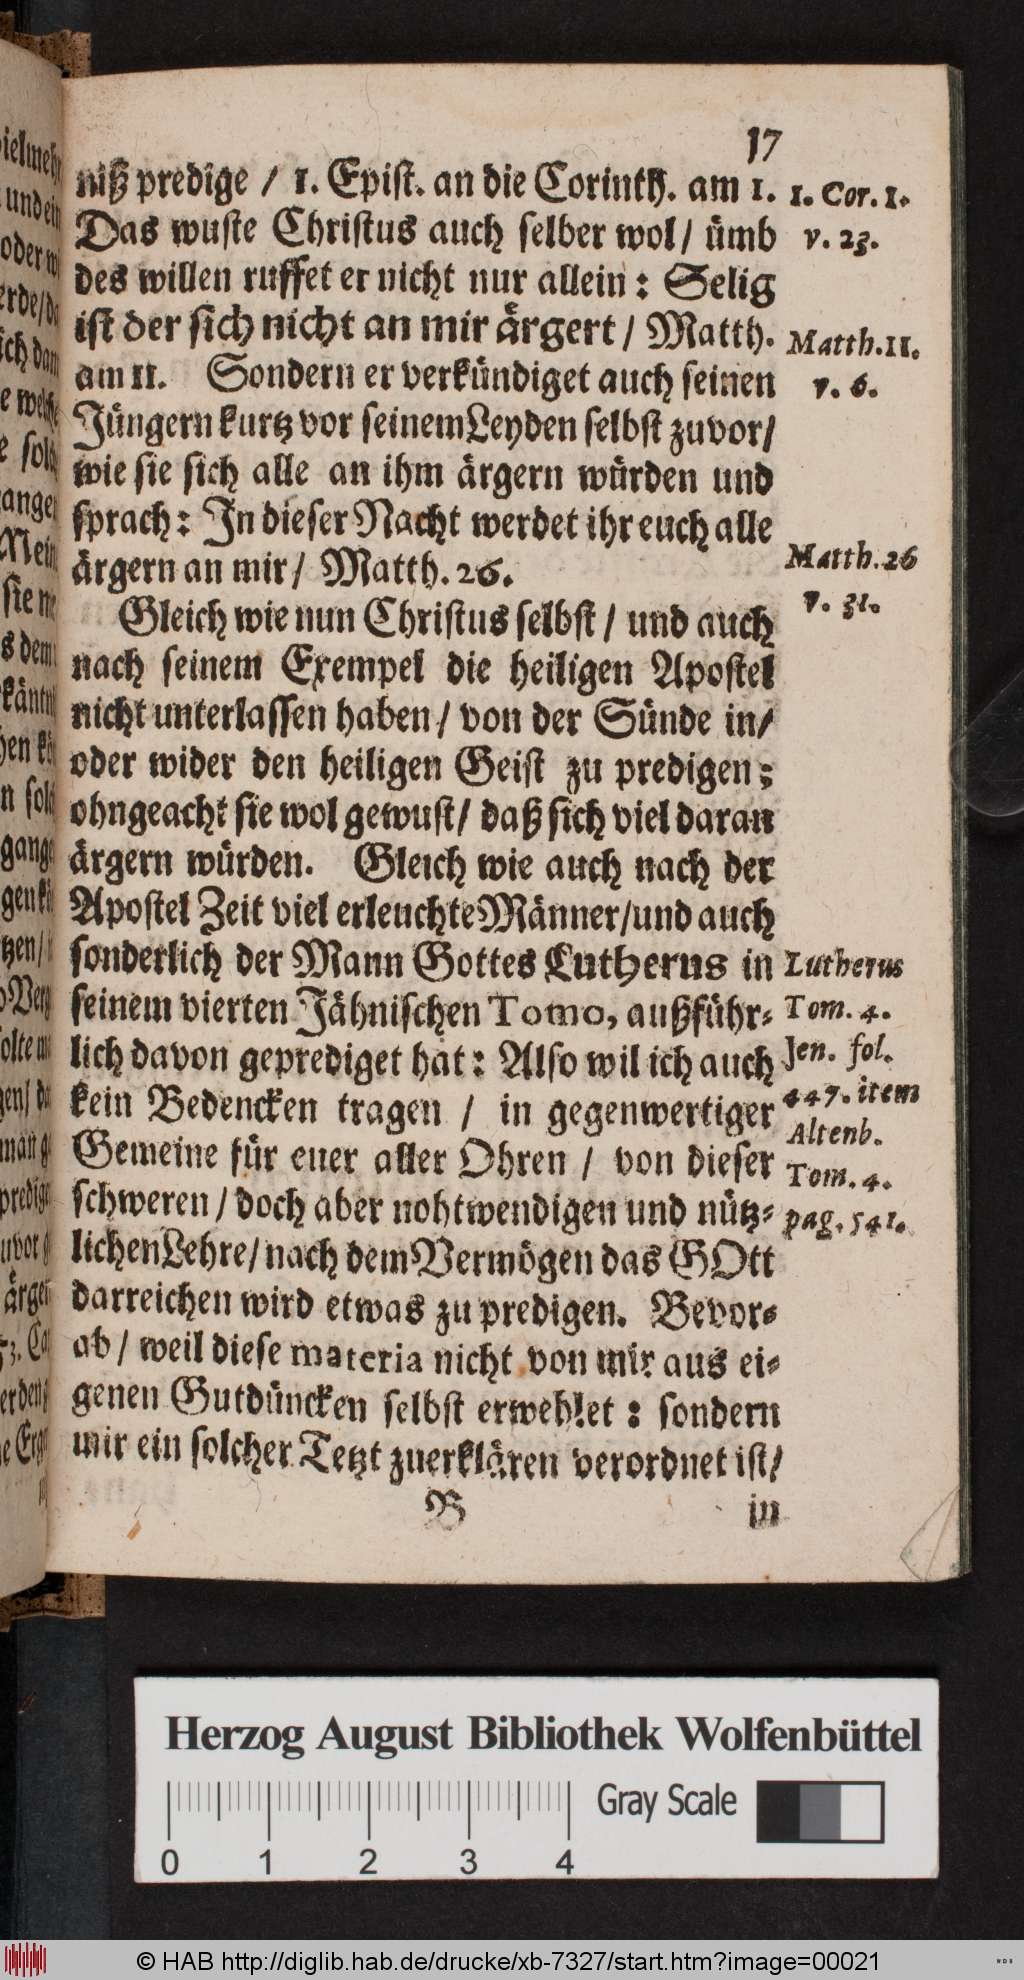 17
niß predige / 1. Epist. an die Corinth. am 1.
Das wuste Christus auch selber wol / ümb
des willen ruffet er nicht nur allein: Selig
ist der sich nicht an mir ärgert / Matth.
am 11. Sondern er verkündiget auch seinen
Jüngern kurtz vor seinem Leyden selbst zuvor /
wie sie sich alle an ihm ärgern würden und
sprach: In dieser Nacht werdet ihr euch alle
ärgern an mir / Matth. 26.
Gleich wie nun Christus selbst / und auch
nach seinem Exempel die heiligen Apostel
nicht unterlassen haben / von der Sünde in /
oder wider den heiligen Geist zu predigen;
ohngeacht sie wol gewust / daß sich viel daran
ärgern würden. Gleich wie auch nach der
Apostel Zeit viel erleuchte Männer / und auch
sonderlich der Mann Gottes Lutherus in
seinem vierten Jähnischen Tomo, außführ-
lich davon geprediget hat: Also wil ich auch
kein Bedencken tragen / in gegenwertiger
Gemeine für euer aller Ohren / von dieser
schweren / doch aber nohtwendigen und nütz-
lichen Lehre / nach dem Vermögen das GOtt
darreichen wird etwas zu predigen. Bevor-
ab / weil diese materia nicht von mir aus ei-
genen Gutdüncken selbst erwehlet: sondern
mir ein solcher Tetzt zuerklären verordnet ist /
B in
1. Cor. 1.
v. 23.
Matth. 11.
v. 6.
Matth. 26
v. 31.
Lutherus
Tom. 4.
Jen. fol.
447. item
Altenb.
Tom. 4.
pag. 541.
Herzog August Bibliothek Wolfenbüttel
Gray Scale
0 1 2 3 4
© HAB http://diglib.hab.de/drucke/xb-7327/start.htm?image=00021